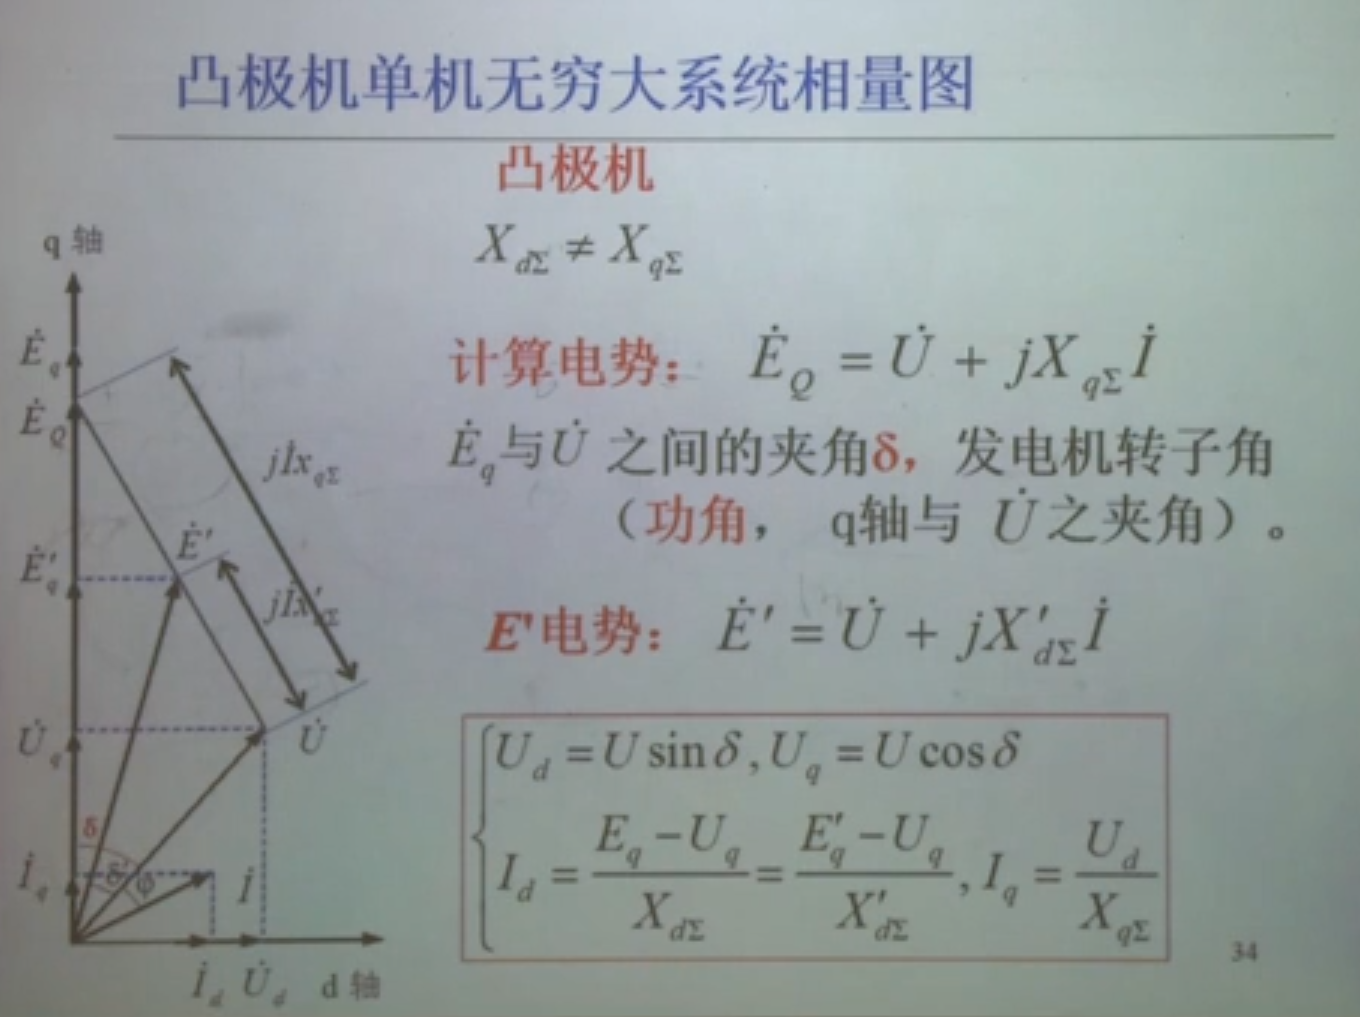 凸极机单机无穷大系统相量图
凸极机
X_{dΣ} ≠ X_{qΣ}
计算电势： Ė_Q = U̇ + jX_{qΣ} İ
Ė_q与U̇ 之间的夹角δ，发电机转子角
（功角， q轴与 U̇之夹角）。
E'电势： Ė' = U̇ + jX'_{dΣ} İ
U_d = U sin δ , U_q = U cos δ
I_d = (E_q − U_q) / X_{dΣ} = (E'_q − U_q) / X'_{dΣ} , I_q = U_d / X_{qΣ}
34
q 轴
Ė_q
Ė_Q
jİx_{qΣ}
Ė'
Ė'_q
jİx'_{dΣ}
U̇_q
U̇
δ
δ'
φ
İ_q
İ
İ_d
U̇_d
d 轴